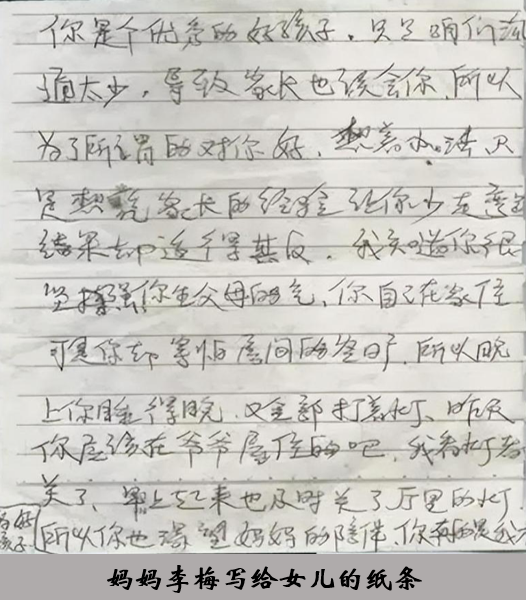 你是个优秀的好孩子，只是咱们沟
通太少，导致家长也误会你，所以
为了所谓的对你好，想
是想 家长的经验让你少走弯
结果却适得其反，我知道你很
坚强 你生父母的气，你自己在家住
可是你却害怕房间的空旷，所以晚
上你睡得晚，又全部打着灯，昨天
你应该在爷爷屋住的吧，我看灯都
关了，早上起来也及时关了厅里的灯，
所以你也渴望妈妈的陪伴，你
好
孩子
妈妈李梅写给女儿的纸条